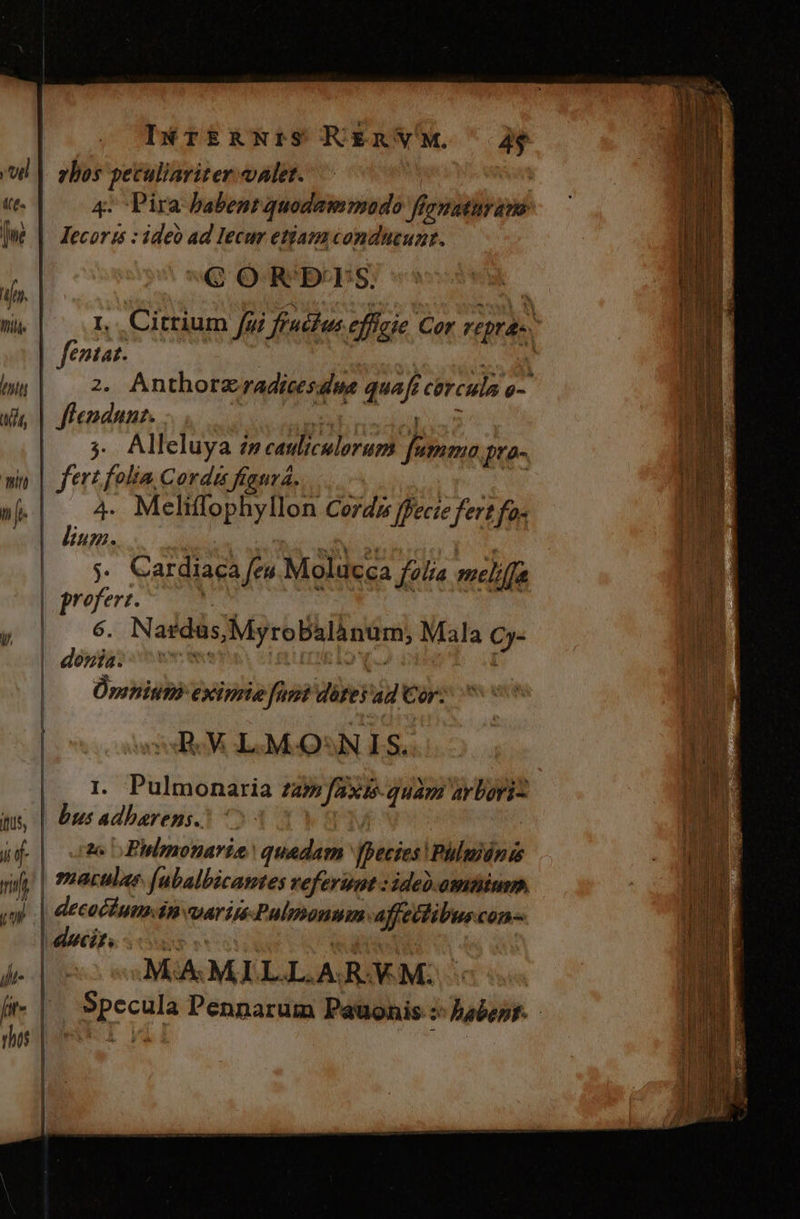 INTERNIS RERVM. 45
rhos peculiariter valet.
4. Pira habent quodammodo signaturam
Iecoris : ideò ad Iecur etiam conducunt.
CORDIS.
1. Citrium sui fructus effigie Cor repræ-
sentat.
2. Anthoræ radices duæ quasi corcula o-
stendunt.
3. Alleluya in cauliculorum summo pro-
fert folia Cordis figurâ.
4. Melissophyllon Cordis specie fert fo-
lium.
5. Cardiaca seu Molucca folia melissæ
profert.
6. Nardus, Myrobalanum, Mala Cy-
donia.
Omnium eximiæ sunt dotes ad Cor.
PVLMONIS.
1. Pulmonaria tam saxis quàm arbori-
bus adhærens.
2. Pulmonariæ quædam species Pulmonis
maculas subalbicantes referunt : ideò omnium
decoctum in variis Pulmonum affectibus con-
ducit.
MAMILLARVM.
Specula Pennarum Pauonis : habent